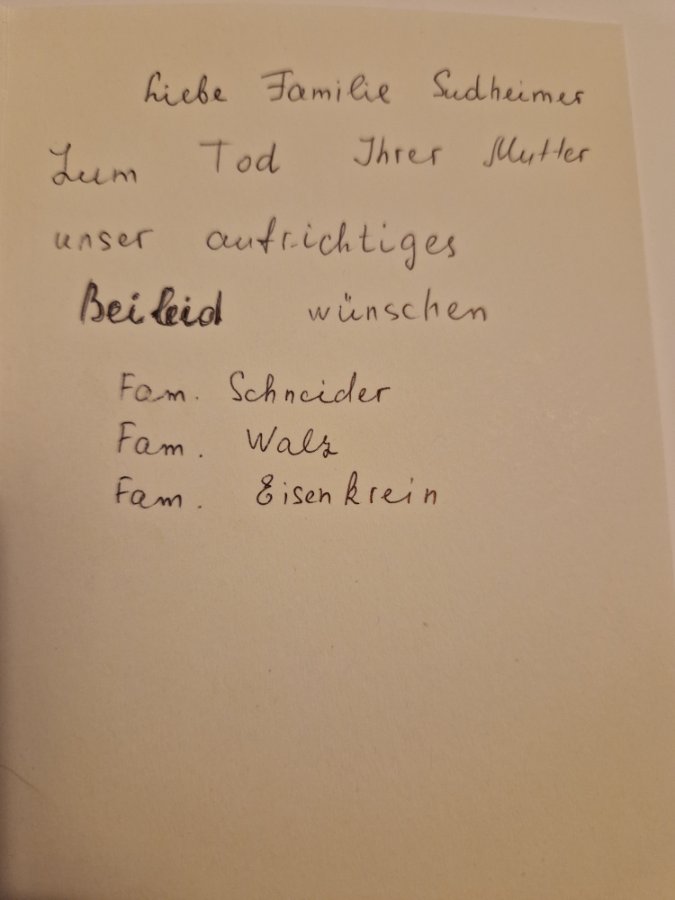 Liebe Familie Sudheimer
Zum Tod Ihrer Mutter
unser aufrichtiges
Beileid wünschen
Fam. Schneider
Fam. Walz
Fam. Eisenkrein